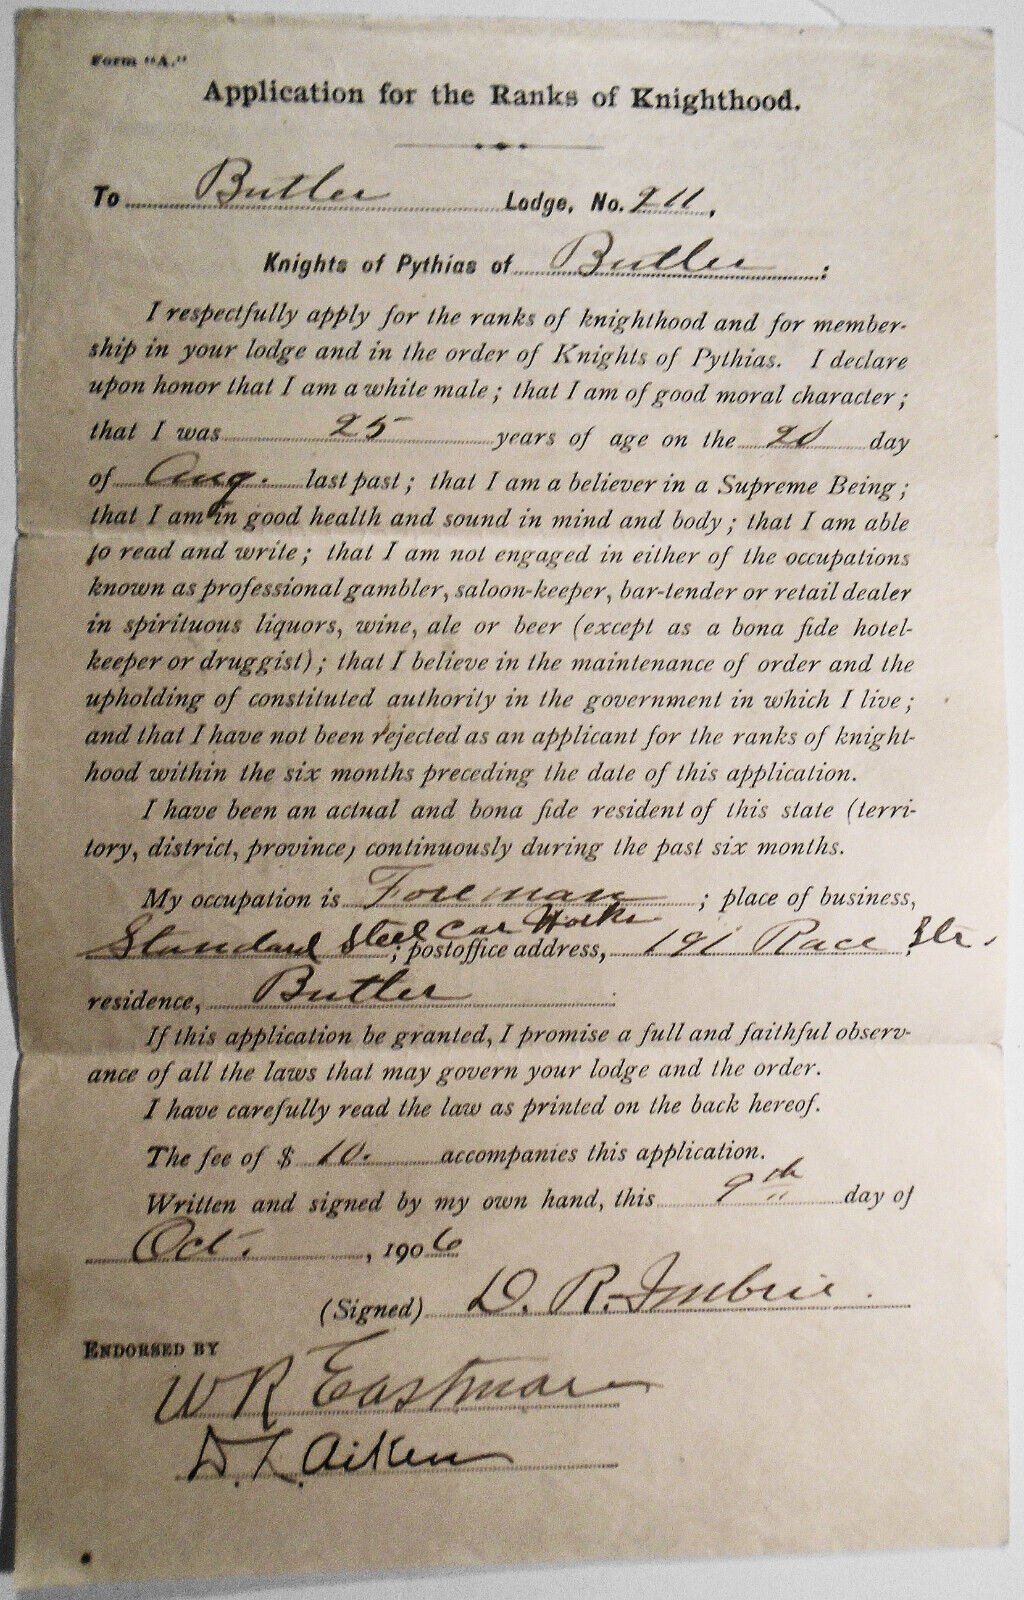 Form "A."
Application for the Ranks of Knighthood.
To Butler Lodge, No. 211,
Knights of Pythias of Butler :
I respectfully apply for the ranks of knighthood and for member-
ship in your lodge and in the order of Knights of Pythias. I declare
upon honor that I am a white male; that I am of good moral character;
that I was 25 years of age on the day
of Aug. last past; that I am a believer in a Supreme Being;
that I am in good health and sound in mind and body; that I am able
to read and write; that I am not engaged in either of the occupations
known as professional gambler, saloon-keeper, bar-tender or retail dealer
in spirituous liquors, wine, ale or beer (except as a bona fide hotel-
keeper or druggist); that I believe in the maintenance of order and the
upholding of constituted authority in the government in which I live;
and that I have not been rejected as an applicant for the ranks of knight-
hood within the six months preceding the date of this application.
I have been an actual and bona fide resident of this state (terri-
tory, district, province) continuously during the past six months.
My occupation is Foreman ; place of business,
Standard Steel Car Works ; postoffice address, 191 Race Str.
residence, Butler .
If this application be granted, I promise a full and faithful observ-
ance of all the laws that may govern your lodge and the order.
I have carefully read the law as printed on the back hereof.
The fee of $ 10. accompanies this application.
Written and signed by my own hand, this 9th day of
Oct. , 1906
(Signed) D. R. Imbrie.
ENDORSED BY
W R Eastman
D. L. Aiken